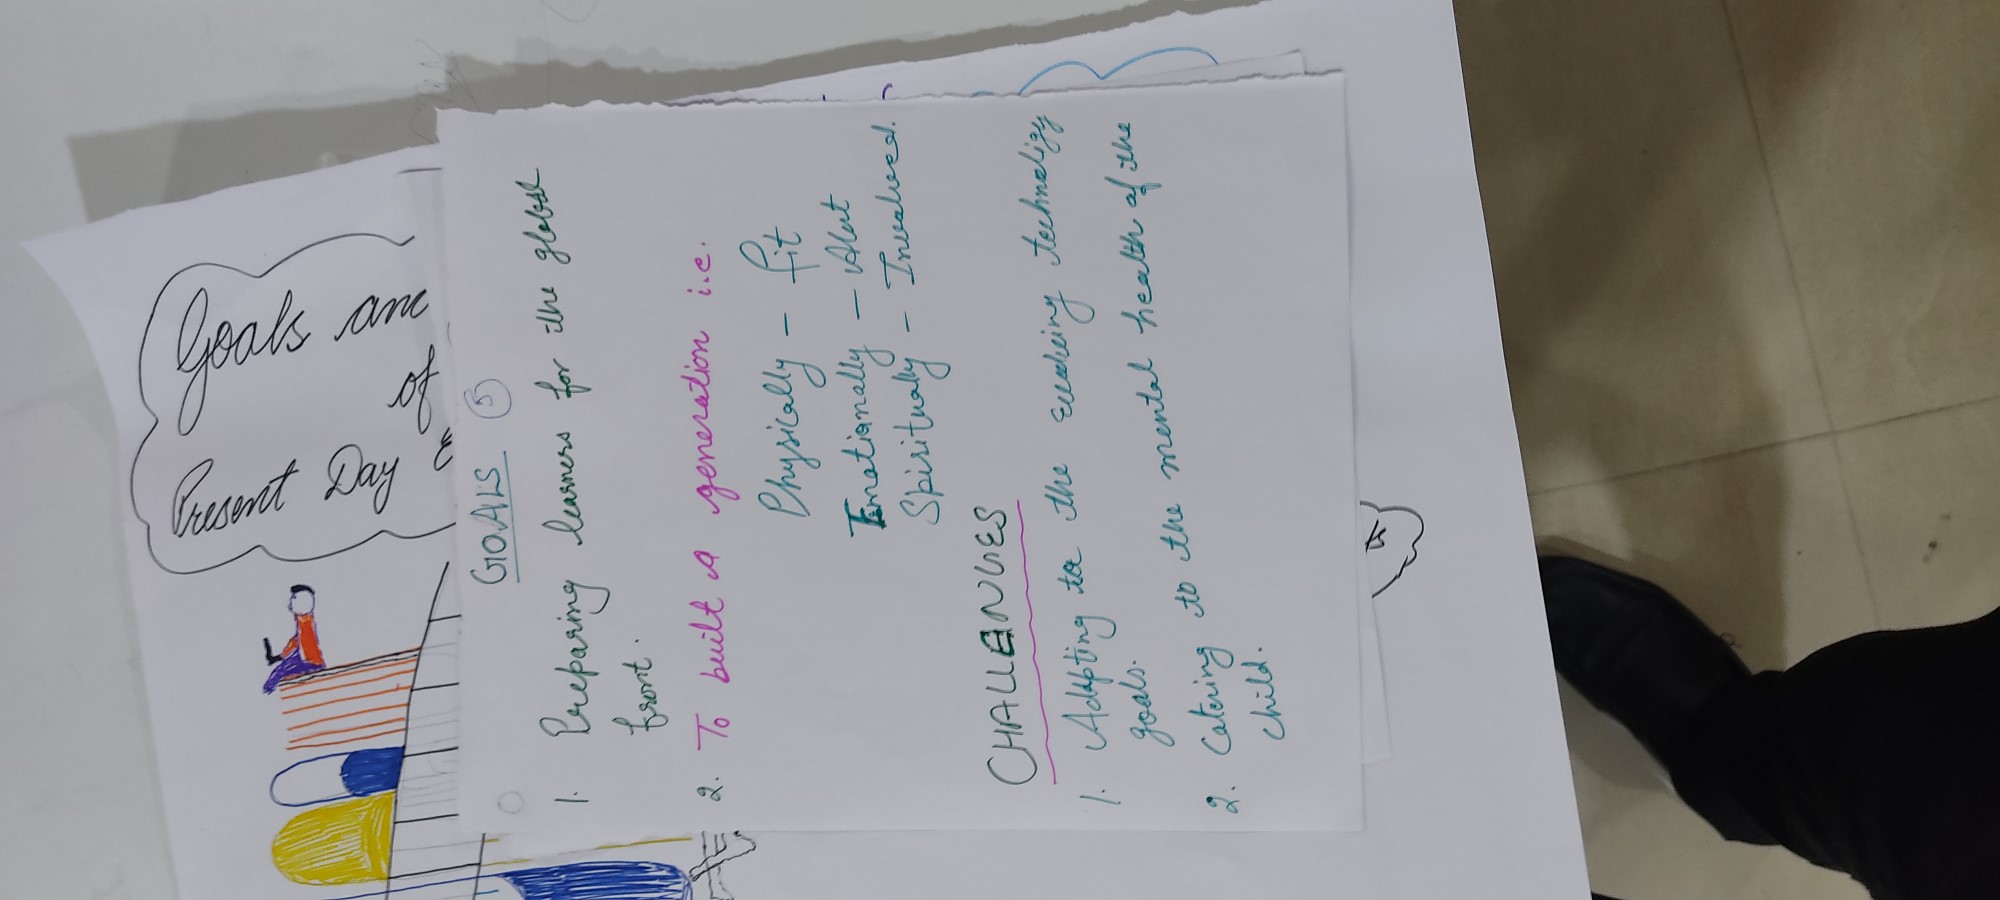 Goals and
of
Present Day
GOALS 5
1. Preparing learners for the global
front.
2. To built a generation i.e.
Physically - fit
Emotionally - Alert
Spiritually - Involved.
CHALLENGES
1. Adapting to the evolving technology
goals.
2. Catering to the mental health of the
child.